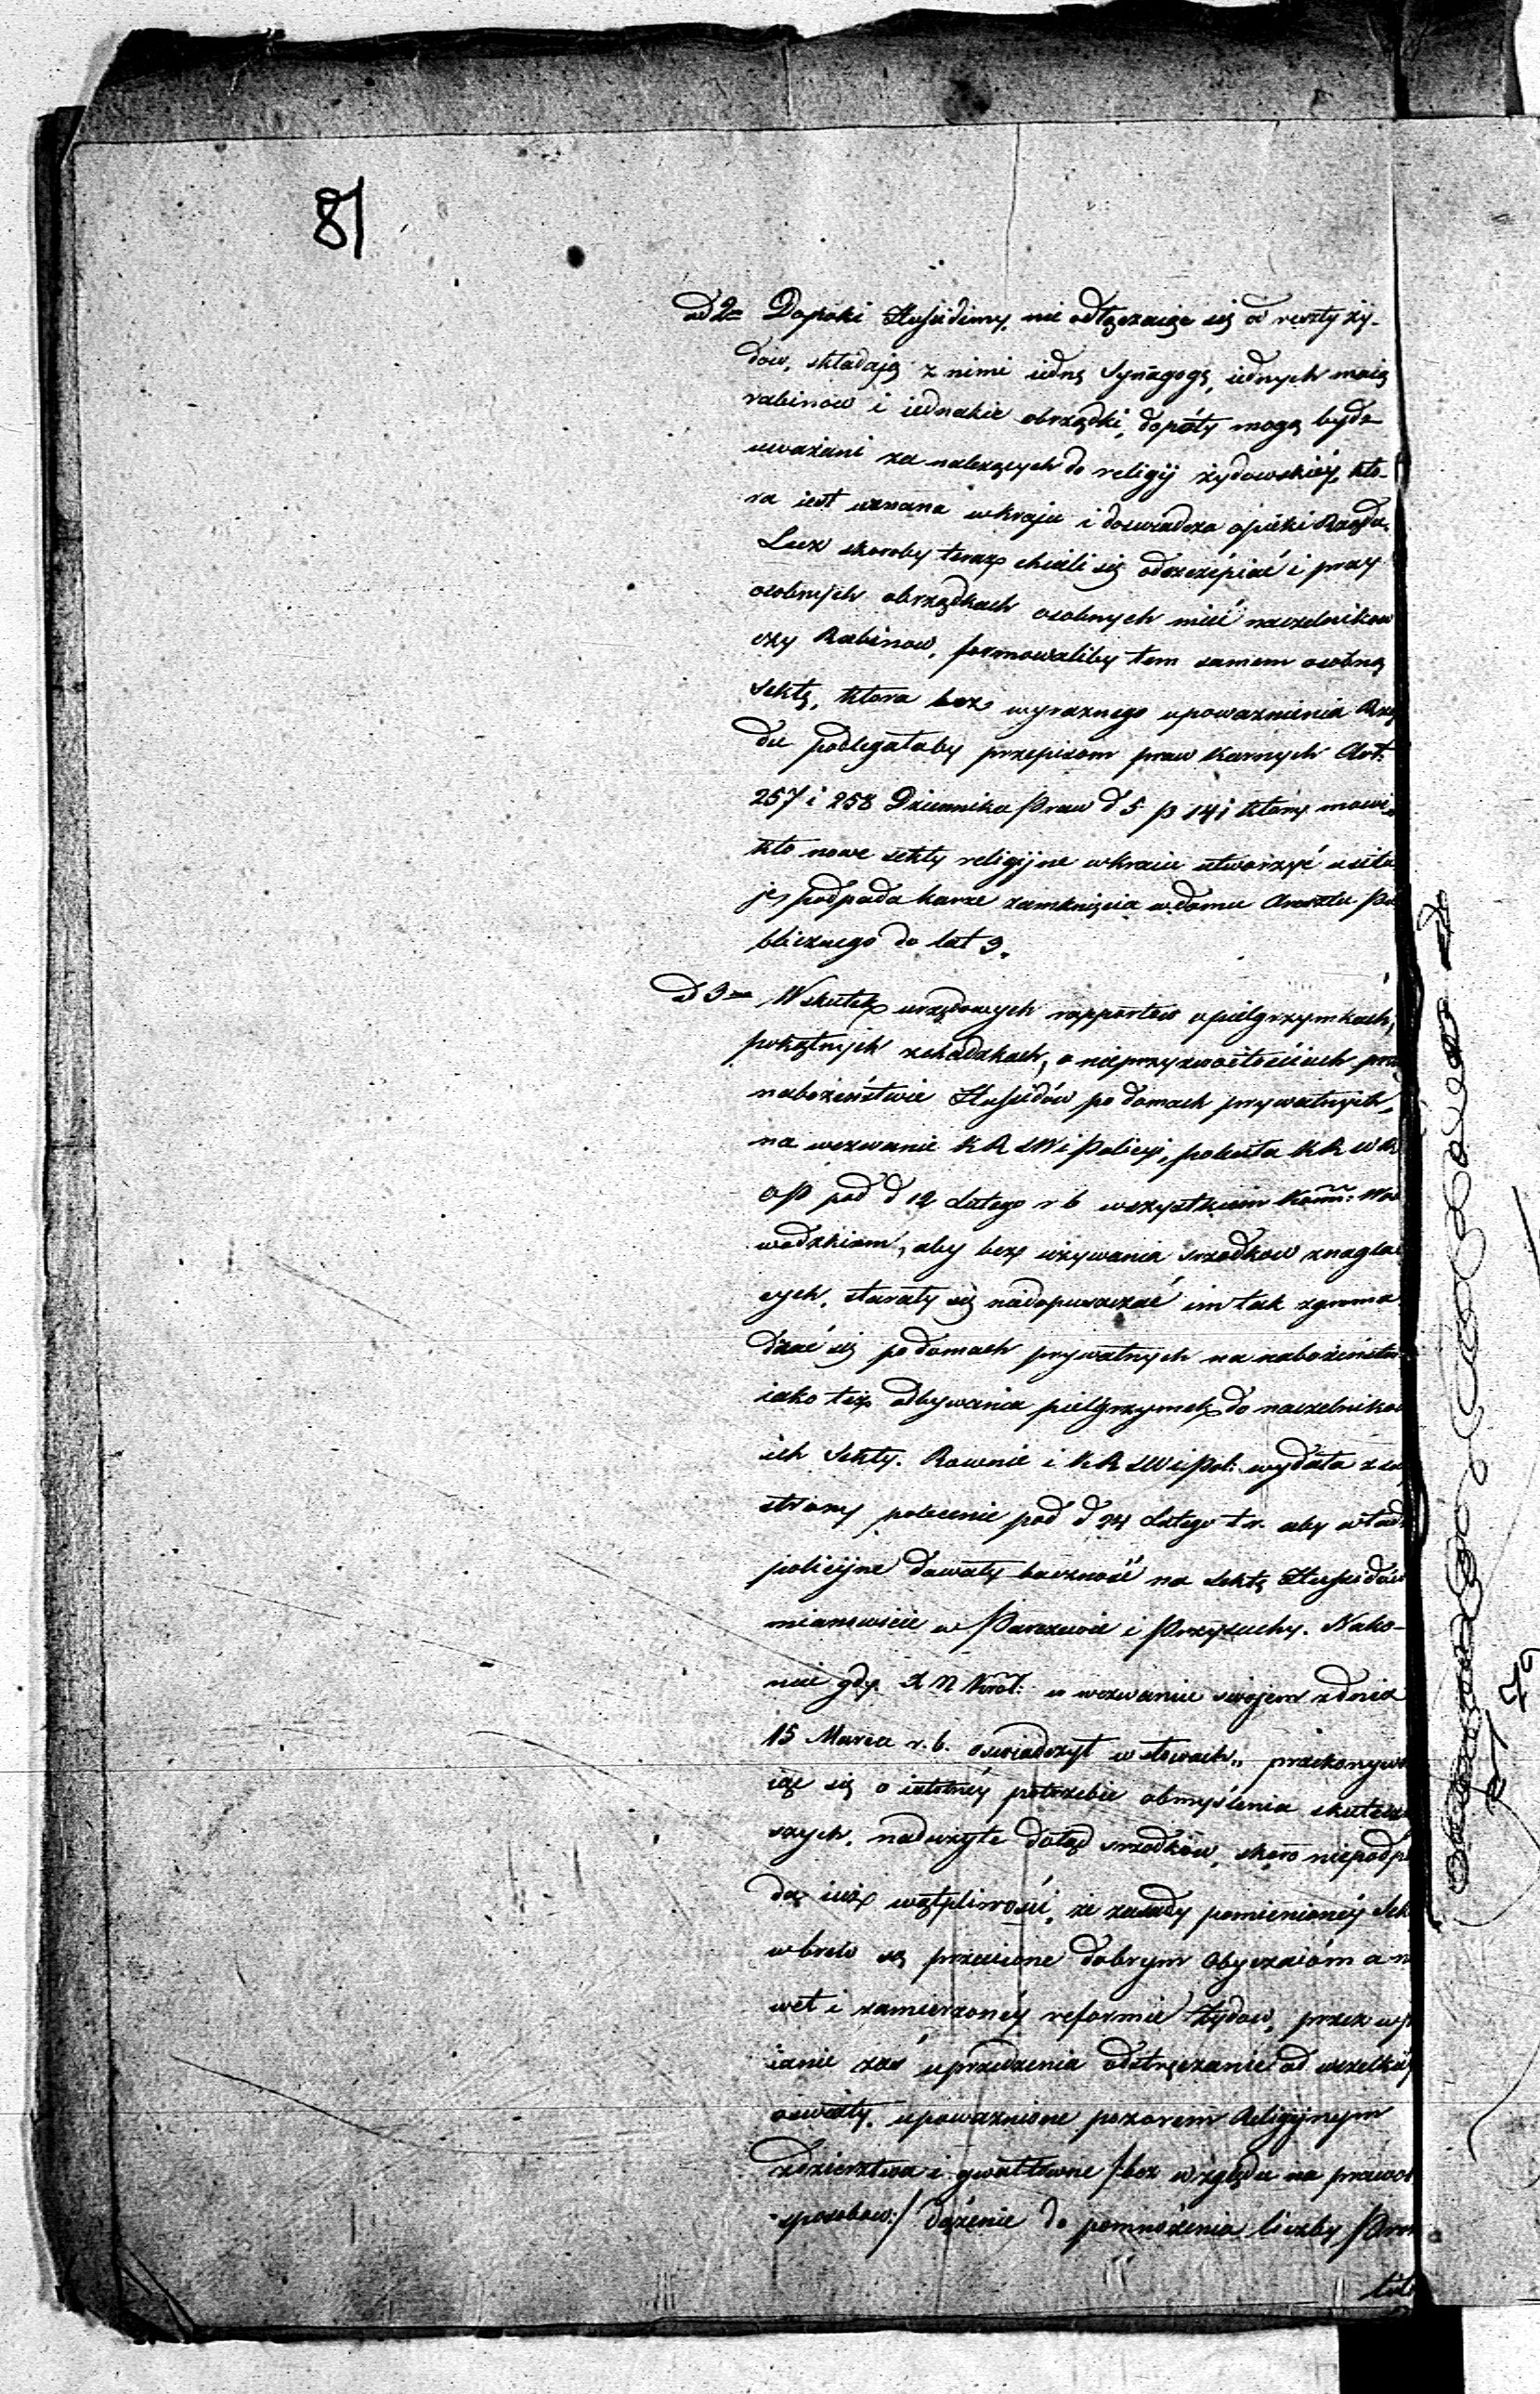 81
ad 2= Dopoki Hussidimy, nie odłączaiąc się od reszty ży-
dow, składaią z nimi iedną Synagogę, iednych maią
rabinow i iednakie obrządki, dopóty mogą bydz
uważani za należących do religij żydowskiéy, kto-
ra iest uznana w kraju i doswiadcza opieki Rządu,
Lecz skoroby teraz chcieli się odszczépiać i przy
osobnych obrządkach osobnych mieć naczelnikow
czy Rabinow, formowaliby tem samem osobną
Sektę, ktora bez wyraznego upowaznienia Rzą
du podlegałaby przepisom praw karnych Art:
257 i 258 Dziennika Praw d 5 p 141 który mowi
kto nowe sekty religijne w kraiu utworzyć usiłu
je, podpada karze zamknięcia w domu Aresztu Pu
blicznego do lat 3.
ad 3= Wskutek urzędowych rapportow o pielgrzymkach,
pokątnych schadzkach, o nieprzyzwoitościach przy
nabożeństwie Hussidów po domach prywatnych,
na wezwanie KRSW i Policyi, poleciła KR W R
OP pod d 12 Lutego r b wszystkiem Komm: Woje
wodzkiem, aby bez używania srzodkow znagla
cych, starały się niedopuszczać im tak zgroma
dzać się po domach prywatnych na nabożeństw
iako też odbywania pielgrzymek do naczelnikow
ich Sekty. Rownie i KRSW i Pol: wydała z s
strony polecenie pod d 24 Lutego t r. aby wład
policyjne dawały baczność na Sektę Hussidów
mianowicie w Parczewie i Przysuchy. Nako-
niec gdy X N Król: w wezwaniu swojem z dnia
15 Marca r. b. oswiadczył w słowach „ przekonywa
iąc się o istotnéy potrzebie obmyślenia skutecz
szych, nadużyte dotąd srzodków, skoro niepodpa
da iuż wątpliwości, że zasady pomienionéy Sek
wbrew są przeciwne dobrym Obyczaióm a n
wet i zamierzonéy reformie Żydow, przez wp
ianie zaś uprzedzenia odstręczanie od wszelkiéy
oswiaty, upowaznione pozorem Religijnym
zdzierstwa i gwałtowne /:bez względu na prawoś
sposobow:/ dążenie do pomnożenia liczby Pro